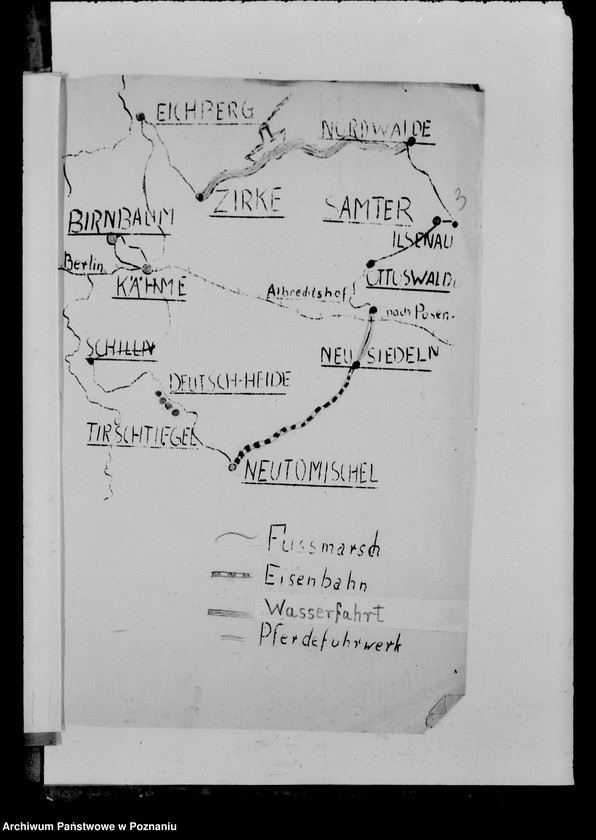 EICHPERG
NORDWALDE
ZIRKE
SAMTER
3
BIRNBAUM
ILSENAU
Berlin
OTTOSWALDE
KÄHME
Albrechtshof
nach Posen
SCHILLN
NEU SIEDELN
DEUTSCH-HEIDE
TIRSCHTIEGEL
NEUTOMISCHEL
Fussmarsch
Eisenbahn
Wasserfahrt
Pferdefuhrwerk
Archiwum Państwowe w Poznaniu